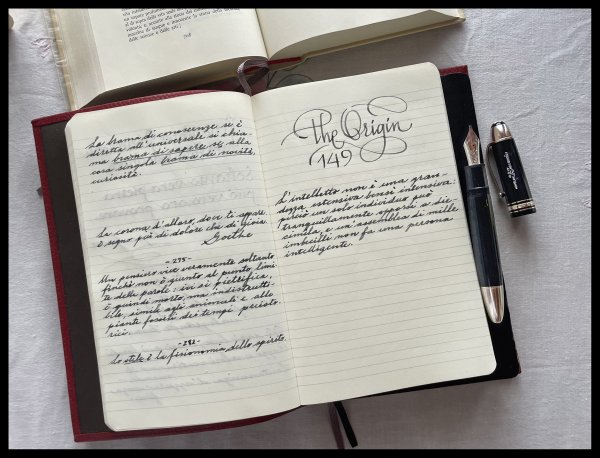 di sopra della vita reale
macchia di sangue e innocente la storia della
delle scienze e delle arti).
La brama di conoscenze se è
diretta all'universale si chia-
ma brama di sapere se alla
cosa singola brama di novità,
curiosità.
La corona d'alloro, dove ti appare,
è segno più di dolore che di gioia.
Goethe
- 275 -
Un pensiero vive veramente soltanto
finché non è giunto al punto limi-
te delle parole: ivi si pietrifica,
è quindi morto, ma indistrutti-
bile, simile agli animali e alle
piante fossili dei tempi preisto-
rici.
- 282 -
Lo stile è la fisionomia dello spirito.
The Origin
149
L'intelletto non è una gran-
dezza estensiva bensì intensiva:
perciò un solo individuo può
tranquillamente opporsi a die-
cimila, e un'assemblea di mille
imbecilli non fa una persona
intelligente.